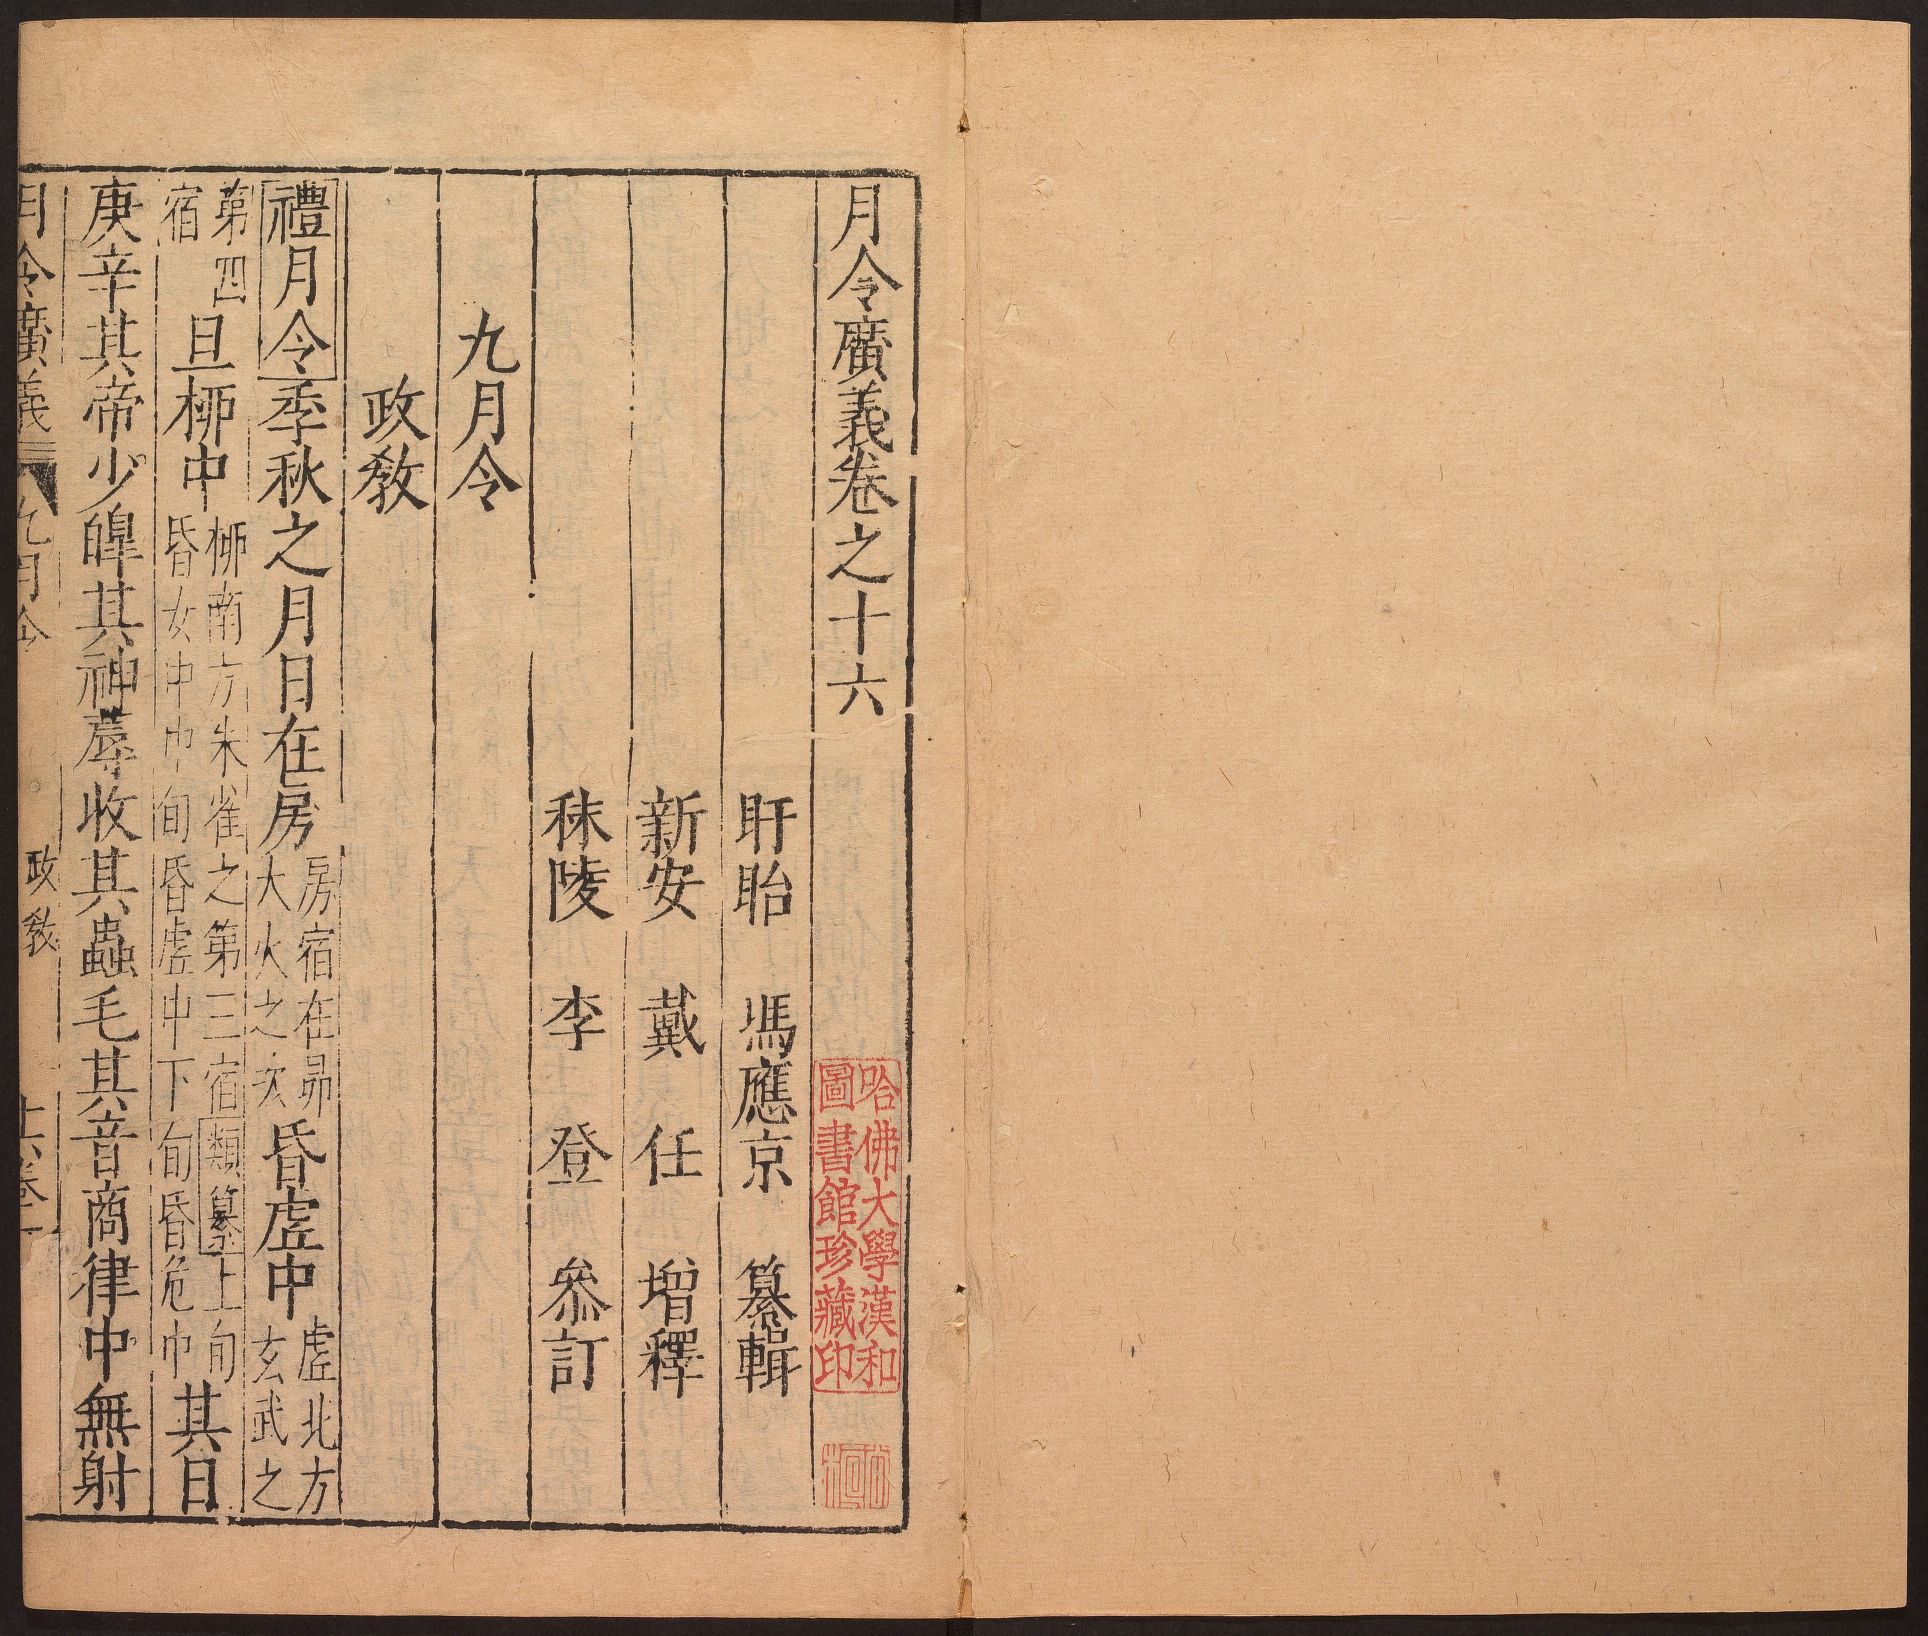 月令廣義卷之十六
盱眙　馮應京　纂輯
新安　戴任　增釋
秣陵　李登　叅訂
九月令
政敎
禮月令季秋之月日在房房宿在昴大火之次昏虛中虛北方玄武之
第四宿旦柳中柳南方朱雀之第三宿類纂上旬昏女中中旬昏虛中下旬昏危中其日
庚辛其帝少皥其神蓐收其蟲毛其音商律中無射
月令廣義　九月令　政敎　十六卷一
哈佛大學漢和
圖書館珍藏印